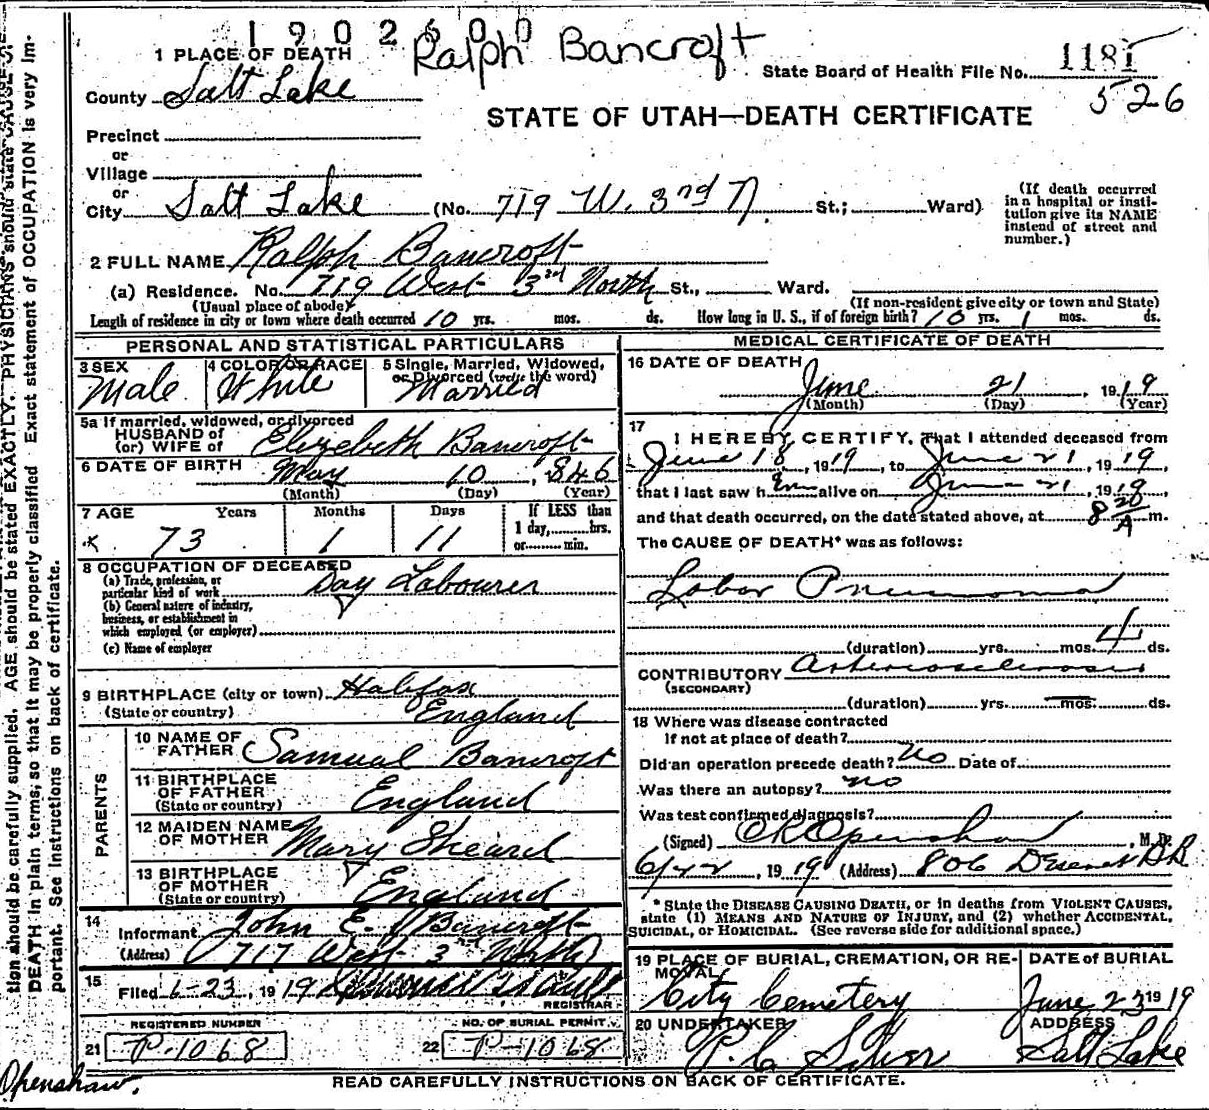 1902600
Ralph Bancroft
1 PLACE OF DEATH
State Board of Health File No. 1181
526
County Salt Lake
STATE OF UTAH—DEATH CERTIFICATE
Precinct
or
Village
or
City Salt Lake (No. 719 W. 3rd N. St.; Ward)
(If death occurred in a hospital or insti-
tution give its NAME
instead of street and
number.)
2 FULL NAME Ralph Bancroft
(a) Residence. No. 719 West 3rd North St., Ward.
(Usual place of abode) (If non-resident give city or town and State)
Length of residence in city or town where death occurred 10 yrs. mos. ds. How long in U. S., if of foreign birth? 10 yrs. 1 mos. ds.
PERSONAL AND STATISTICAL PARTICULARS
3 SEX
Male
4 COLOR OR RACE
White
5 Single, Married, Widowed,
or Divorced (write the word)
Married
5a If married, widowed, or divorced
HUSBAND of
(or) WIFE of Elizebeth Bancroft
6 DATE OF BIRTH May 10, 1846
(Month) (Day) (Year)
7 AGE Years Months Days If LESS than
1 day, hrs.
or min.
73 1 11
8 OCCUPATION OF DECEASED
(a) Trade, profession, or
particular kind of work Day Labourer
(b) General nature of industry,
business, or establishment in
which employed (or employer)
(c) Name of employer
9 BIRTHPLACE (city or town) Halifax
(State or country) England
PARENTS
10 NAME OF
FATHER Samual Bancroft
11 BIRTHPLACE
OF FATHER
(State or country) England
12 MAIDEN NAME
OF MOTHER Mary Sheard
13 BIRTHPLACE
OF MOTHER
(State or country) England
14
Informant John E. Bancroft
(Address) 717 West 3rd North
15
Filed 6-23, 1919
REGISTRAR
REGISTERED NUMBER
21 P-1068
NO. OF BURIAL PERMIT
22 P-1068
MEDICAL CERTIFICATE OF DEATH
16 DATE OF DEATH
June 21, 1919
(Month) (Day) (Year)
17
I HEREBY CERTIFY, That I attended deceased from
June 18, 1919, to June 21, 1919,
that I last saw h im alive on June 21, 1919,
and that death occurred, on the date stated above, at 8 20 A m.
The CAUSE OF DEATH* was as follows:
Lobar Pneumonia
(duration) yrs. mos. 4 ds.
CONTRIBUTORY Arteriosclerosis
(SECONDARY)
(duration) yrs. mos. ds.
18 Where was disease contracted
If not at place of death?
Did an operation precede death? No Date of
Was there an autopsy? no
Was test confirmed diagnosis?
(Signed) C R Openshaw, M. D.
6/22, 1919 (Address) 806 Deseret Bk B
* State the DISEASE CAUSING DEATH, or in deaths from VIOLENT CAUSES,
state (1) MEANS AND NATURE OF INJURY, and (2) whether ACCIDENTAL,
SUICIDAL, or HOMICIDAL. (See reverse side for additional space.)
19 PLACE OF BURIAL, CREMATION, OR RE-
MOVAL
City Cemetery
DATE of BURIAL
June 23 1919
20 UNDERTAKER
ADDRESS
Salt Lake
Openshaw.
READ CAREFULLY INSTRUCTIONS ON BACK OF CERTIFICATE.
tion should be carefully supplied. AGE should be stated EXACTLY. PHYSICIANS should state CAUSE OF
DEATH in plain terms, so that it may be properly classified. Exact statement of OCCUPATION is very im-
portant. See instructions on back of certificate.